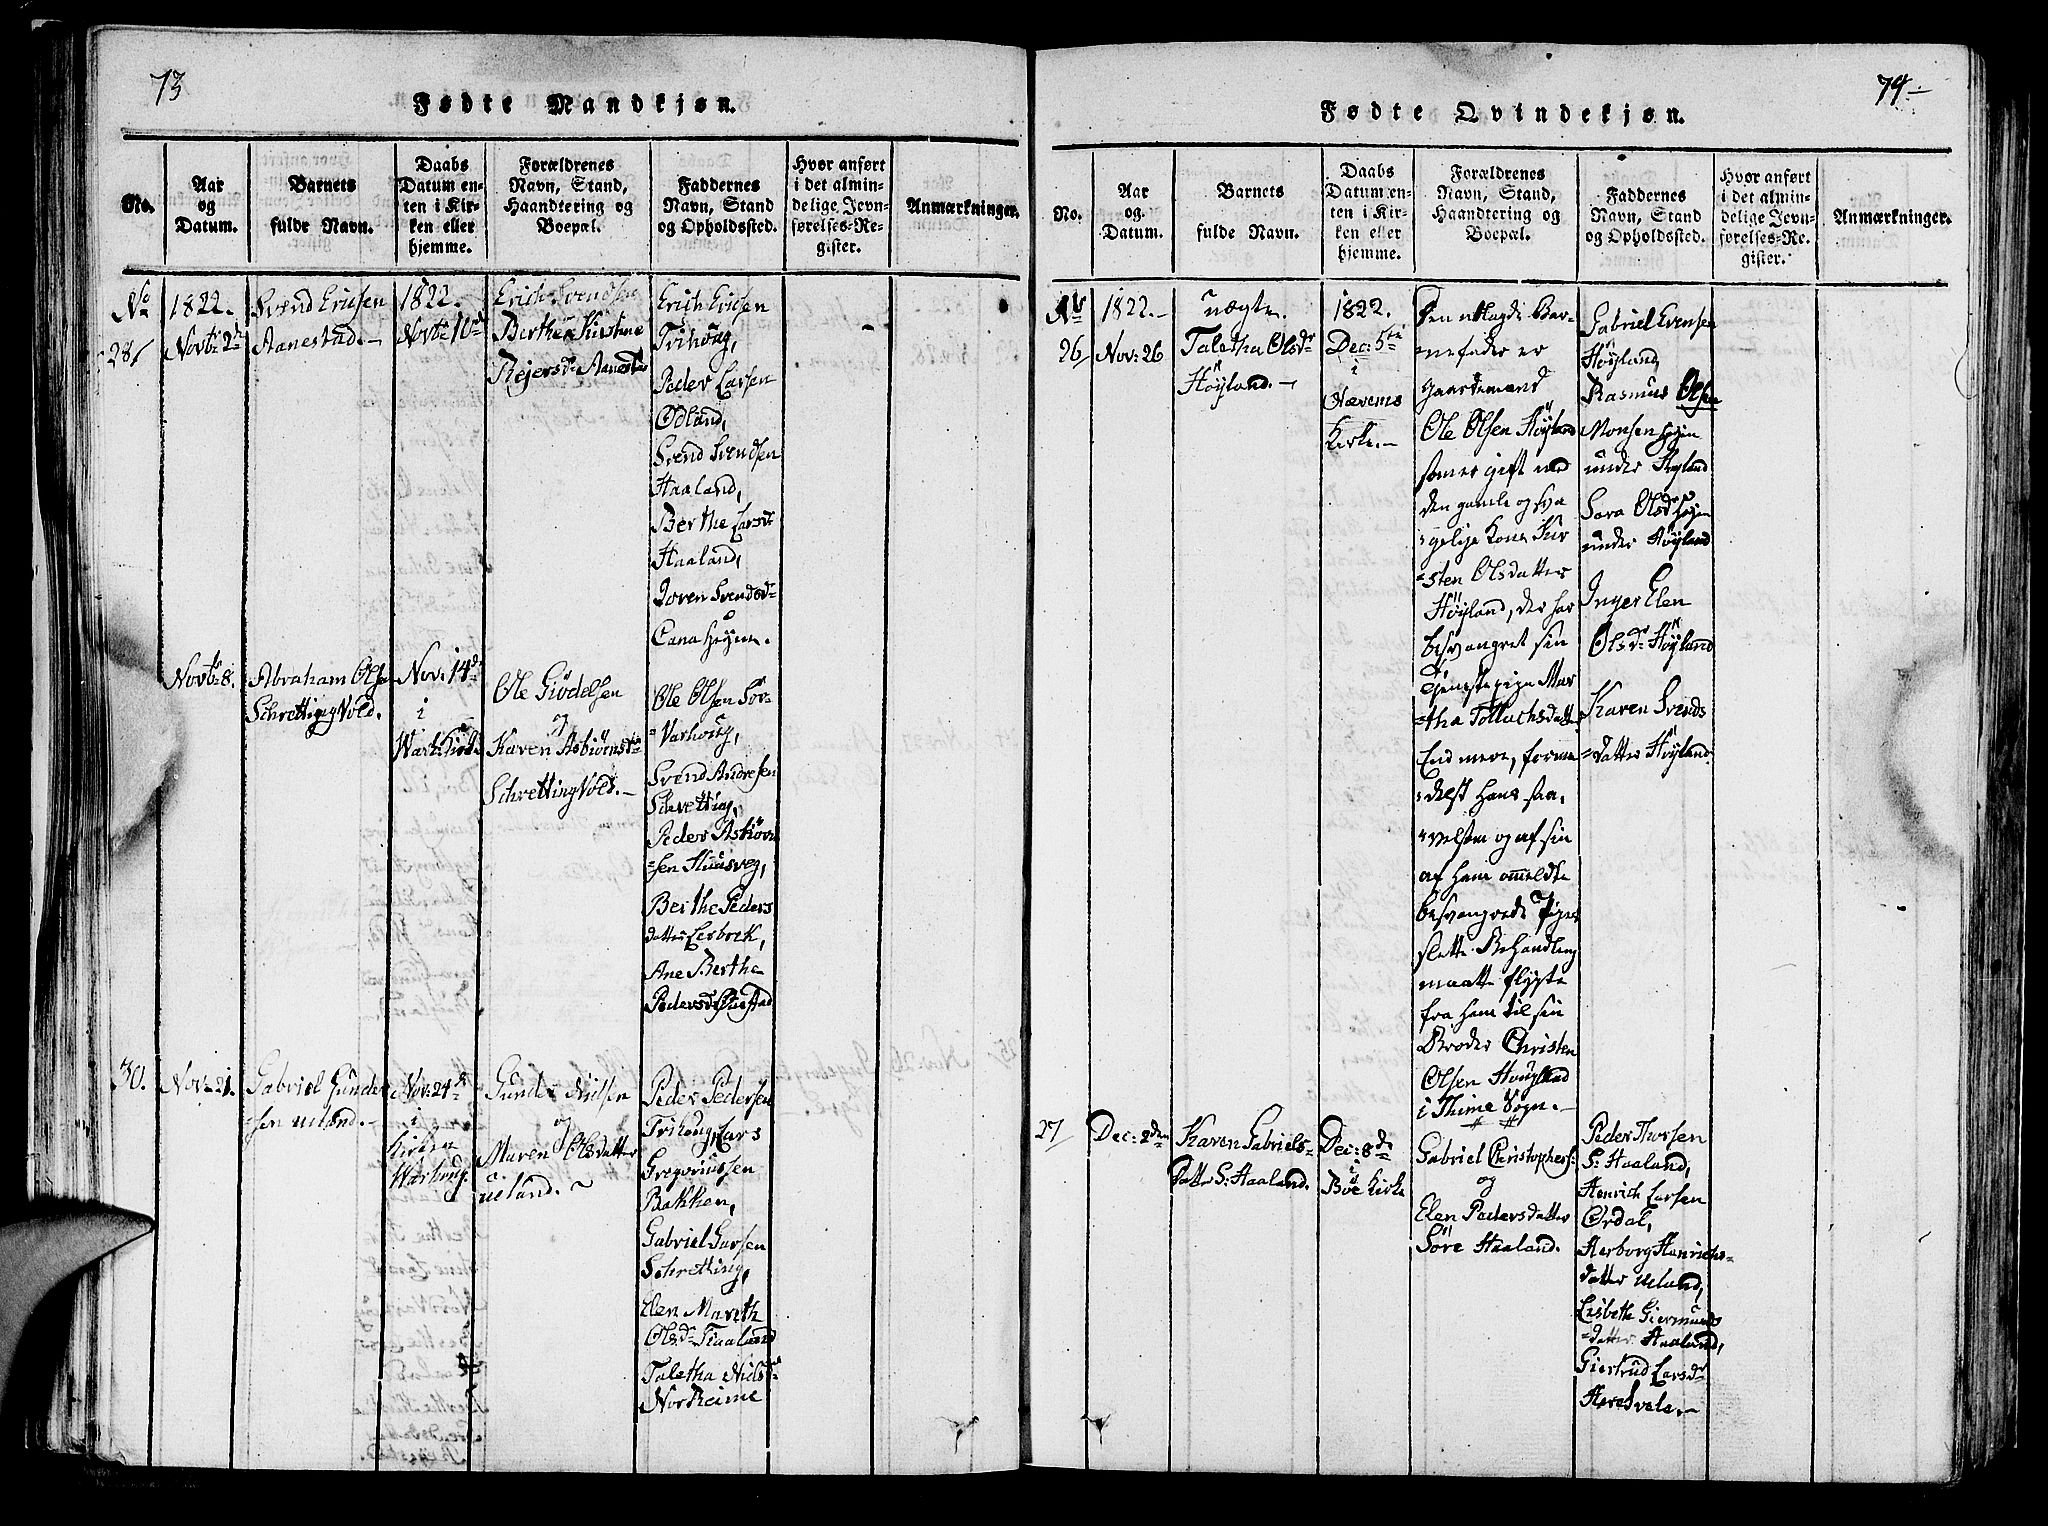 73
Fødte Mandkjøn.
No.
Aar
og
Datum.
Barnets
fulde Navn.
Daabs
Datum en-
ten i Kir-
ken eller
hjemme.
Forældrenes
Navn, Stand,
Haandtering og
Boepæl.
Faddernes
Navn, Stand
og Opholdssted.
Hvor anført
i det almin-
delige Jevn-
førelses-Re-
gister.
Anmærkninger.
No
28
1822.
Novb: 2d
Svend Ericsen
Aanestad.
1822.
Novb: 10d
Erich Svendsen
Berthe Kirstine
Rejersd: Aanestad
Erich Ericsen
Trihoug,
Peder Larsen
Ødland,
Svend Svendsen
Haaland,
Berthe Larsd:
Haaland,
Joren Svendsd:
Novb: 8.
Abraham Olsen
Schretting Vold.
Nov: 14d
i
Ole Giödelsen
og
Karen Asbiörnsd:
Schretting Vold.
Ole Olsen Sör-
Varhoug,
Svend Andresen
Schretting,
Peder Asbiörn
-sen Huusveg,
Berthe Peders
datter Lerbrek,
Ane Berthe
30.
Nov: 21.
Gabriel Gunder
-sen
Nov: 24d
i
Kirken
Gunder Nielsen
og
Maren Olsdatter
Ueland.
Peder Pedersen
Trihoug, Lars
Gregoriussen
Bakken,
Gabriel Larsen
Schretting,
Elen Mareth
Olsd: Haaland
Taletha Nielsd:
Nordheime
74
Fødte Qvindekjøn.
No.
Aar
og
Datum.
Barnets
fulde Navn.
Daabs
Datum en-
ten i Kir-
ken eller
hjemme.
Forældrenes
Navn, Stand,
Haandtering og
Boepæl.
Faddernes
Navn, Stand
og Opholdssted.
Hvor anført
i det almin-
delige Jevn-
førelses-Re-
gister.
Anmærkninger.
No
26
1822.
Nov: 26
uægte.
Taletha Olsdr
Höyland.
1822.
Dec: 5te
i
Nærems
Kirke.
Den udlagde Bar-
nefader er
Gaardmand
Ole Olsen Höyland
som er gift med
den gamle og sva
-gelige Kone Kir
-sten Olsdatter
Höyland, der har
besvangret sin
Tjenestepige Mar
-tha Tollachsdatter
End mere, forme
-delst hans
og af sin
af ham ommeldte
besvangrede Piges
slette Behandling
maatte flygte
fra ham til sin
Broder Christen
Olsen Houyland
i Thime Sogn.
Gabriel Evensen
Höyland,
Rasmus Olsen
Monsen
under Höyland
Sara Olsdr
under Höyland
Inger Elen
Olsdr Höyland
Karen Svends
-datter Höyland.
27
Dec: 2den
Karen Gabriels-
datter S: Haaland.
Dec: 8de
i
Böe Kirke
Gabriel Christophers:
og
Elen Pedersdatter
Söre Haaland.
Peder Thorsen
S: Haaland,
Henrich Larsen
Ørdal,
Herborg Henrichs-
datter Ueland,
Lisbeth Giermunds
-datter Haaland,
Giertrud Larsd: